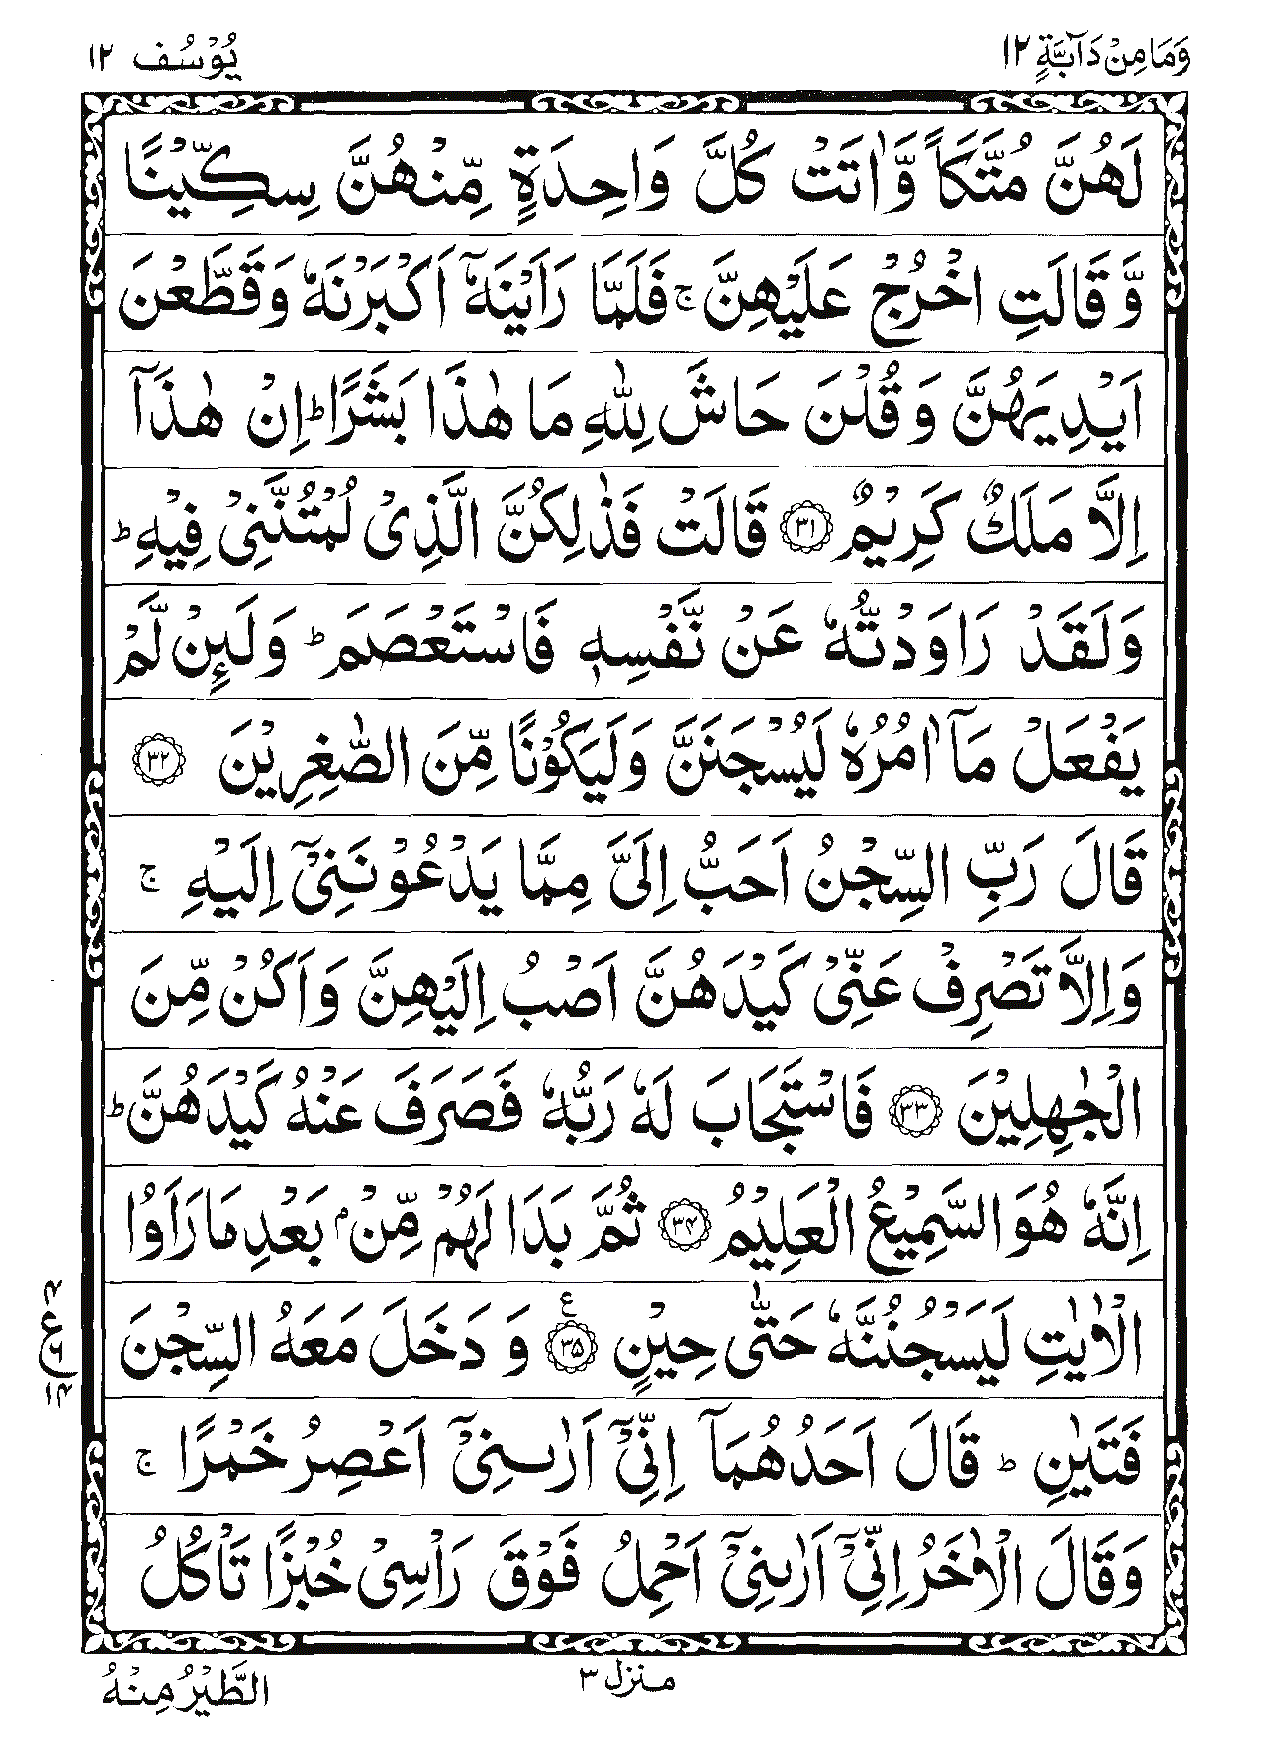 وَمَا مِنْ دَآبَّةٍ ١٢
يُوْسُف ١٢
لَهُنَّ مُتَّكَاً وَّاٰتَتْ كُلَّ وَاحِدَةٍ مِّنْهُنَّ سِكِّيْنًا
وَّقَالَتِ اخْرُجْ عَلَيْهِنَّ ۚ فَلَمَّا رَاَيْنَهٗۤ اَكْبَرْنَهٗ وَقَطَّعْنَ
اَيْدِيَهُنَّ وَقُلْنَ حَاشَ لِلّٰهِ مَا هٰذَا بَشَرًا ؕ اِنْ هٰذَاۤ
اِلَّا مَلَكٌ كَرِيْمٌ ۝٣١ قَالَتْ فَذٰلِكُنَّ الَّذِیْ لُمْتُنَّنِیْ فِيْهِ ؕ
وَلَقَدْ رَاوَدْتُّهٗ عَنْ نَّفْسِهٖ فَاسْتَعْصَمَ ؕ وَلَئِنْ لَّمْ
يَفْعَلْ مَاۤ اٰمُرُهٗ لَيُسْجَنَنَّ وَلَيَكُوْنًا مِّنَ الصّٰغِرِيْنَ ۝٣٢
قَالَ رَبِّ السِّجْنُ اَحَبُّ اِلَیَّ مِمَّا يَدْعُوْنَنِیْۤ اِلَيْهِ ۚ
وَاِلَّا تَصْرِفْ عَنِّیْ كَيْدَهُنَّ اَصْبُ اِلَيْهِنَّ وَاَكُنْ مِّنَ
الْجٰهِلِيْنَ ۝٣٣ فَاسْتَجَابَ لَهٗ رَبُّهٗ فَصَرَفَ عَنْهُ كَيْدَهُنَّ ؕ
اِنَّهٗ هُوَ السَّمِيْعُ الْعَلِيْمُ ۝٣٤ ثُمَّ بَدَا لَهُمْ مِّنْۢ بَعْدِ مَا رَاَوُا
الْاٰيٰتِ لَيَسْجُنُنَّهٗ حَتّٰی حِيْنٍ ۝٣٥ ع وَدَخَلَ مَعَهُ السِّجْنَ
فَتَيٰنِ ؕ قَالَ اَحَدُهُمَاۤ اِنِّیْۤ اَرٰىنِیْۤ اَعْصِرُ خَمْرًا ۚ
وَقَالَ الْاٰخَرُ اِنِّیْۤ اَرٰىنِیْۤ اَحْمِلُ فَوْقَ رَاْسِیْ خُبْزًا تَاْكُلُ
٤
ع
٦
١٤
منزل ٣
الطَّيْرُ مِنْهُ